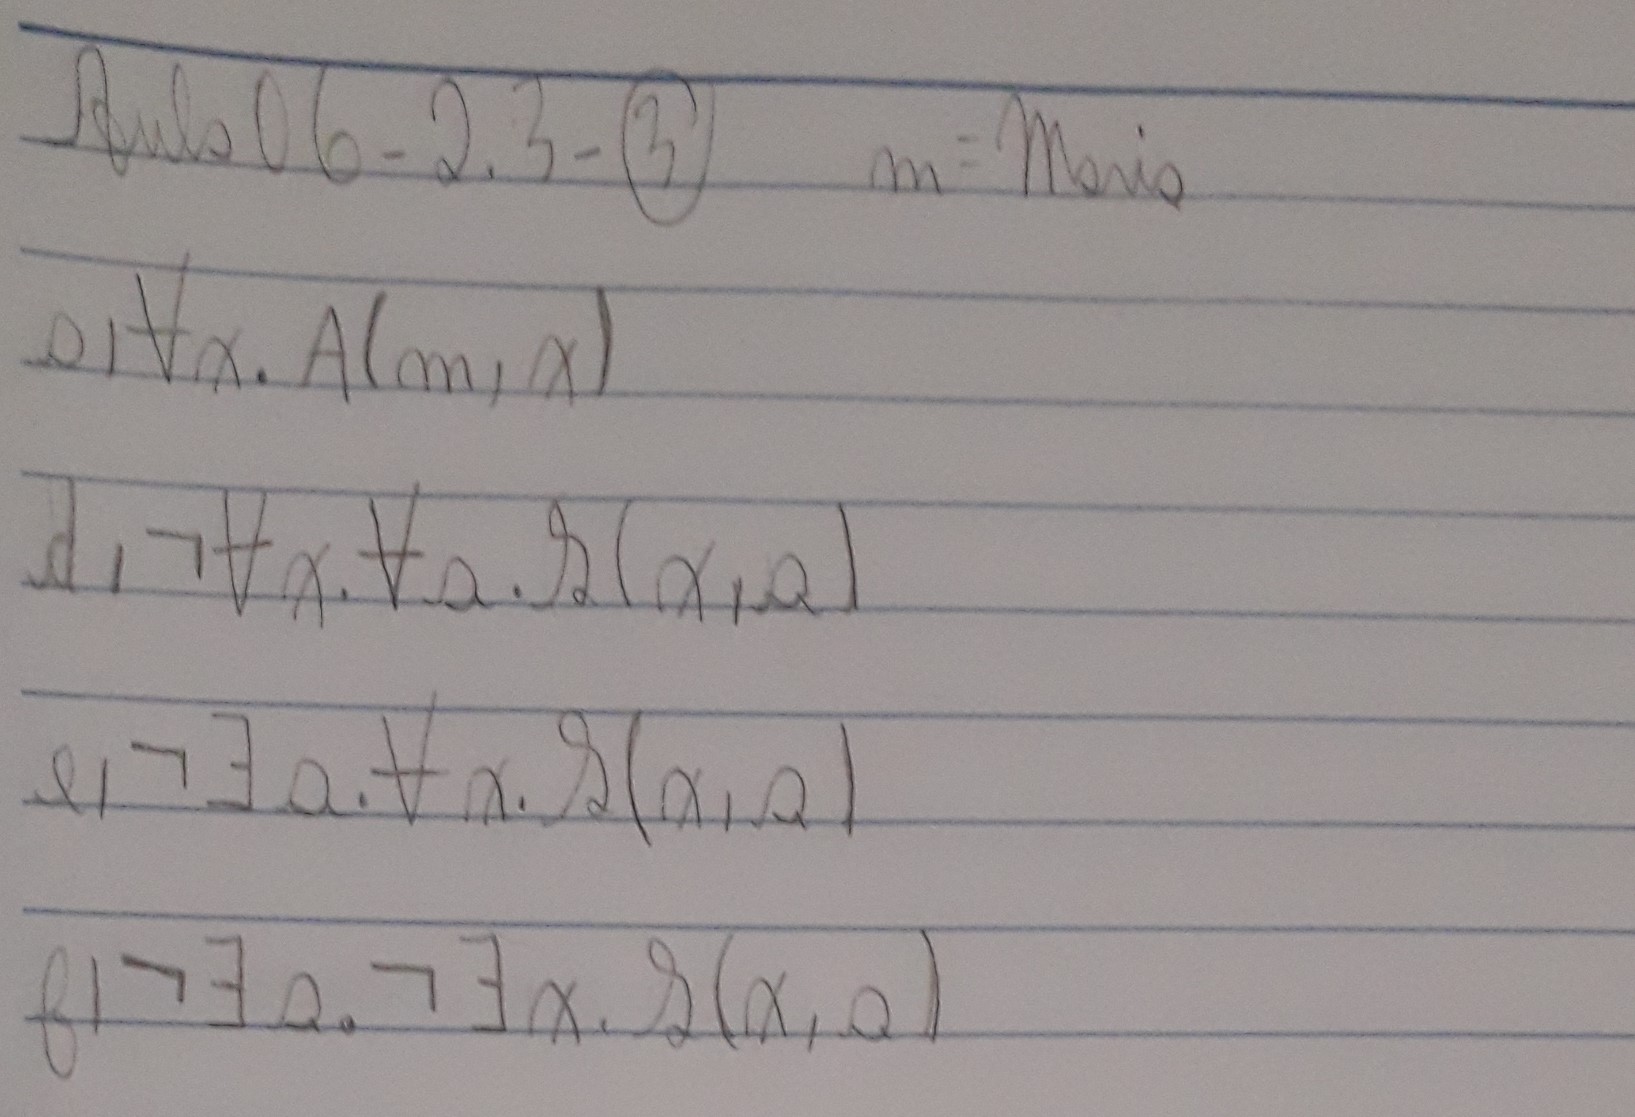 Aula 06 - 2.3 - 3 m = Maria
a) ∀x. A(m, x)
d) ¬∀x. ∀a. S(x, a)
e) ¬∃a. ∀x. S(x, a)
f) ¬∃a. ¬∃x. S(x, a)